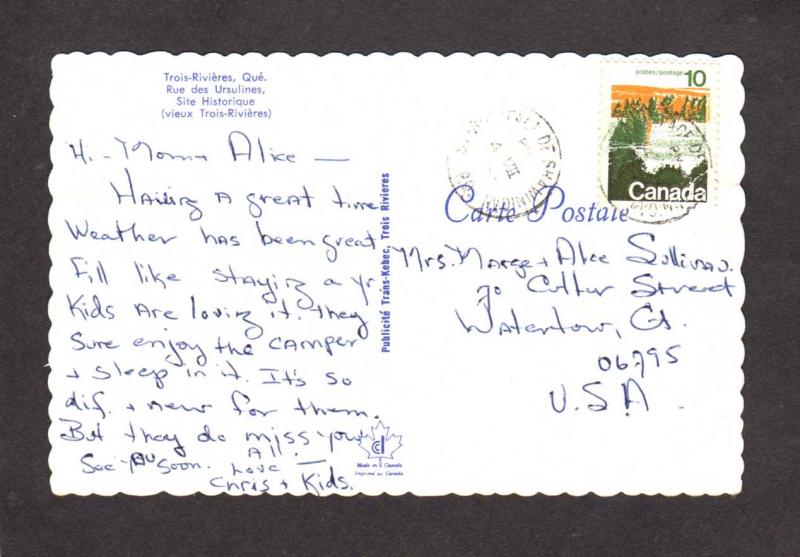 Trois-Rivières, Qué.
Rue des Ursulines,
Site Historique
(vieux Trois-Rivières)
Hi - Mom + Alice —
Having a great time
Weather has been great
Fill like staying a yr.
Kids are loving it. they
sure enjoy the camper
+ sleep in it. It's so
dif. + new for them.
But they do miss you
All.
See you soon. Love —
Chris + Kids.
Publicité Trans-Kebec, Trois Rivieres
Made in Canada
Imprimé au Canada
postes/postage 10
Canada
SHAWINIGAN
Carte Postale
Mrs. Marge + Alice Sullivan.
70 Cutler Street
Watertown, Ct.
06795
U.S.A.